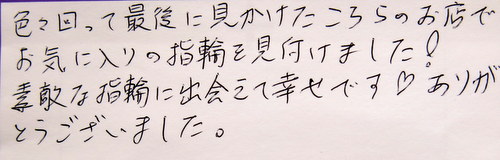 色々回って最後に見かけたこちらのお店で
お気に入りの指輪を見付けました!
素敵な指輪に出会えて幸せです♡ ありが
とうございました。